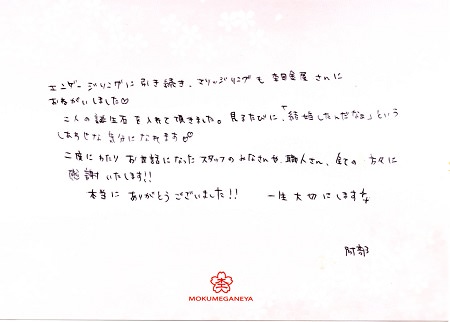 エンゲージリングに引き続き、マリッジリングも杢目金屋さんに
おねがいしました♡
二人の誕生石を入れて頂きました。見るたびに、「結婚したんだなぁ」という
しあわせな気分になれます♡
二度にわたりお世話になったスタッフのみなさんや、職人さん、全ての方々に
感謝いたします!!
本当にありがとうございました!! 一生大切にします
阿部
MOKUMEGANEYA